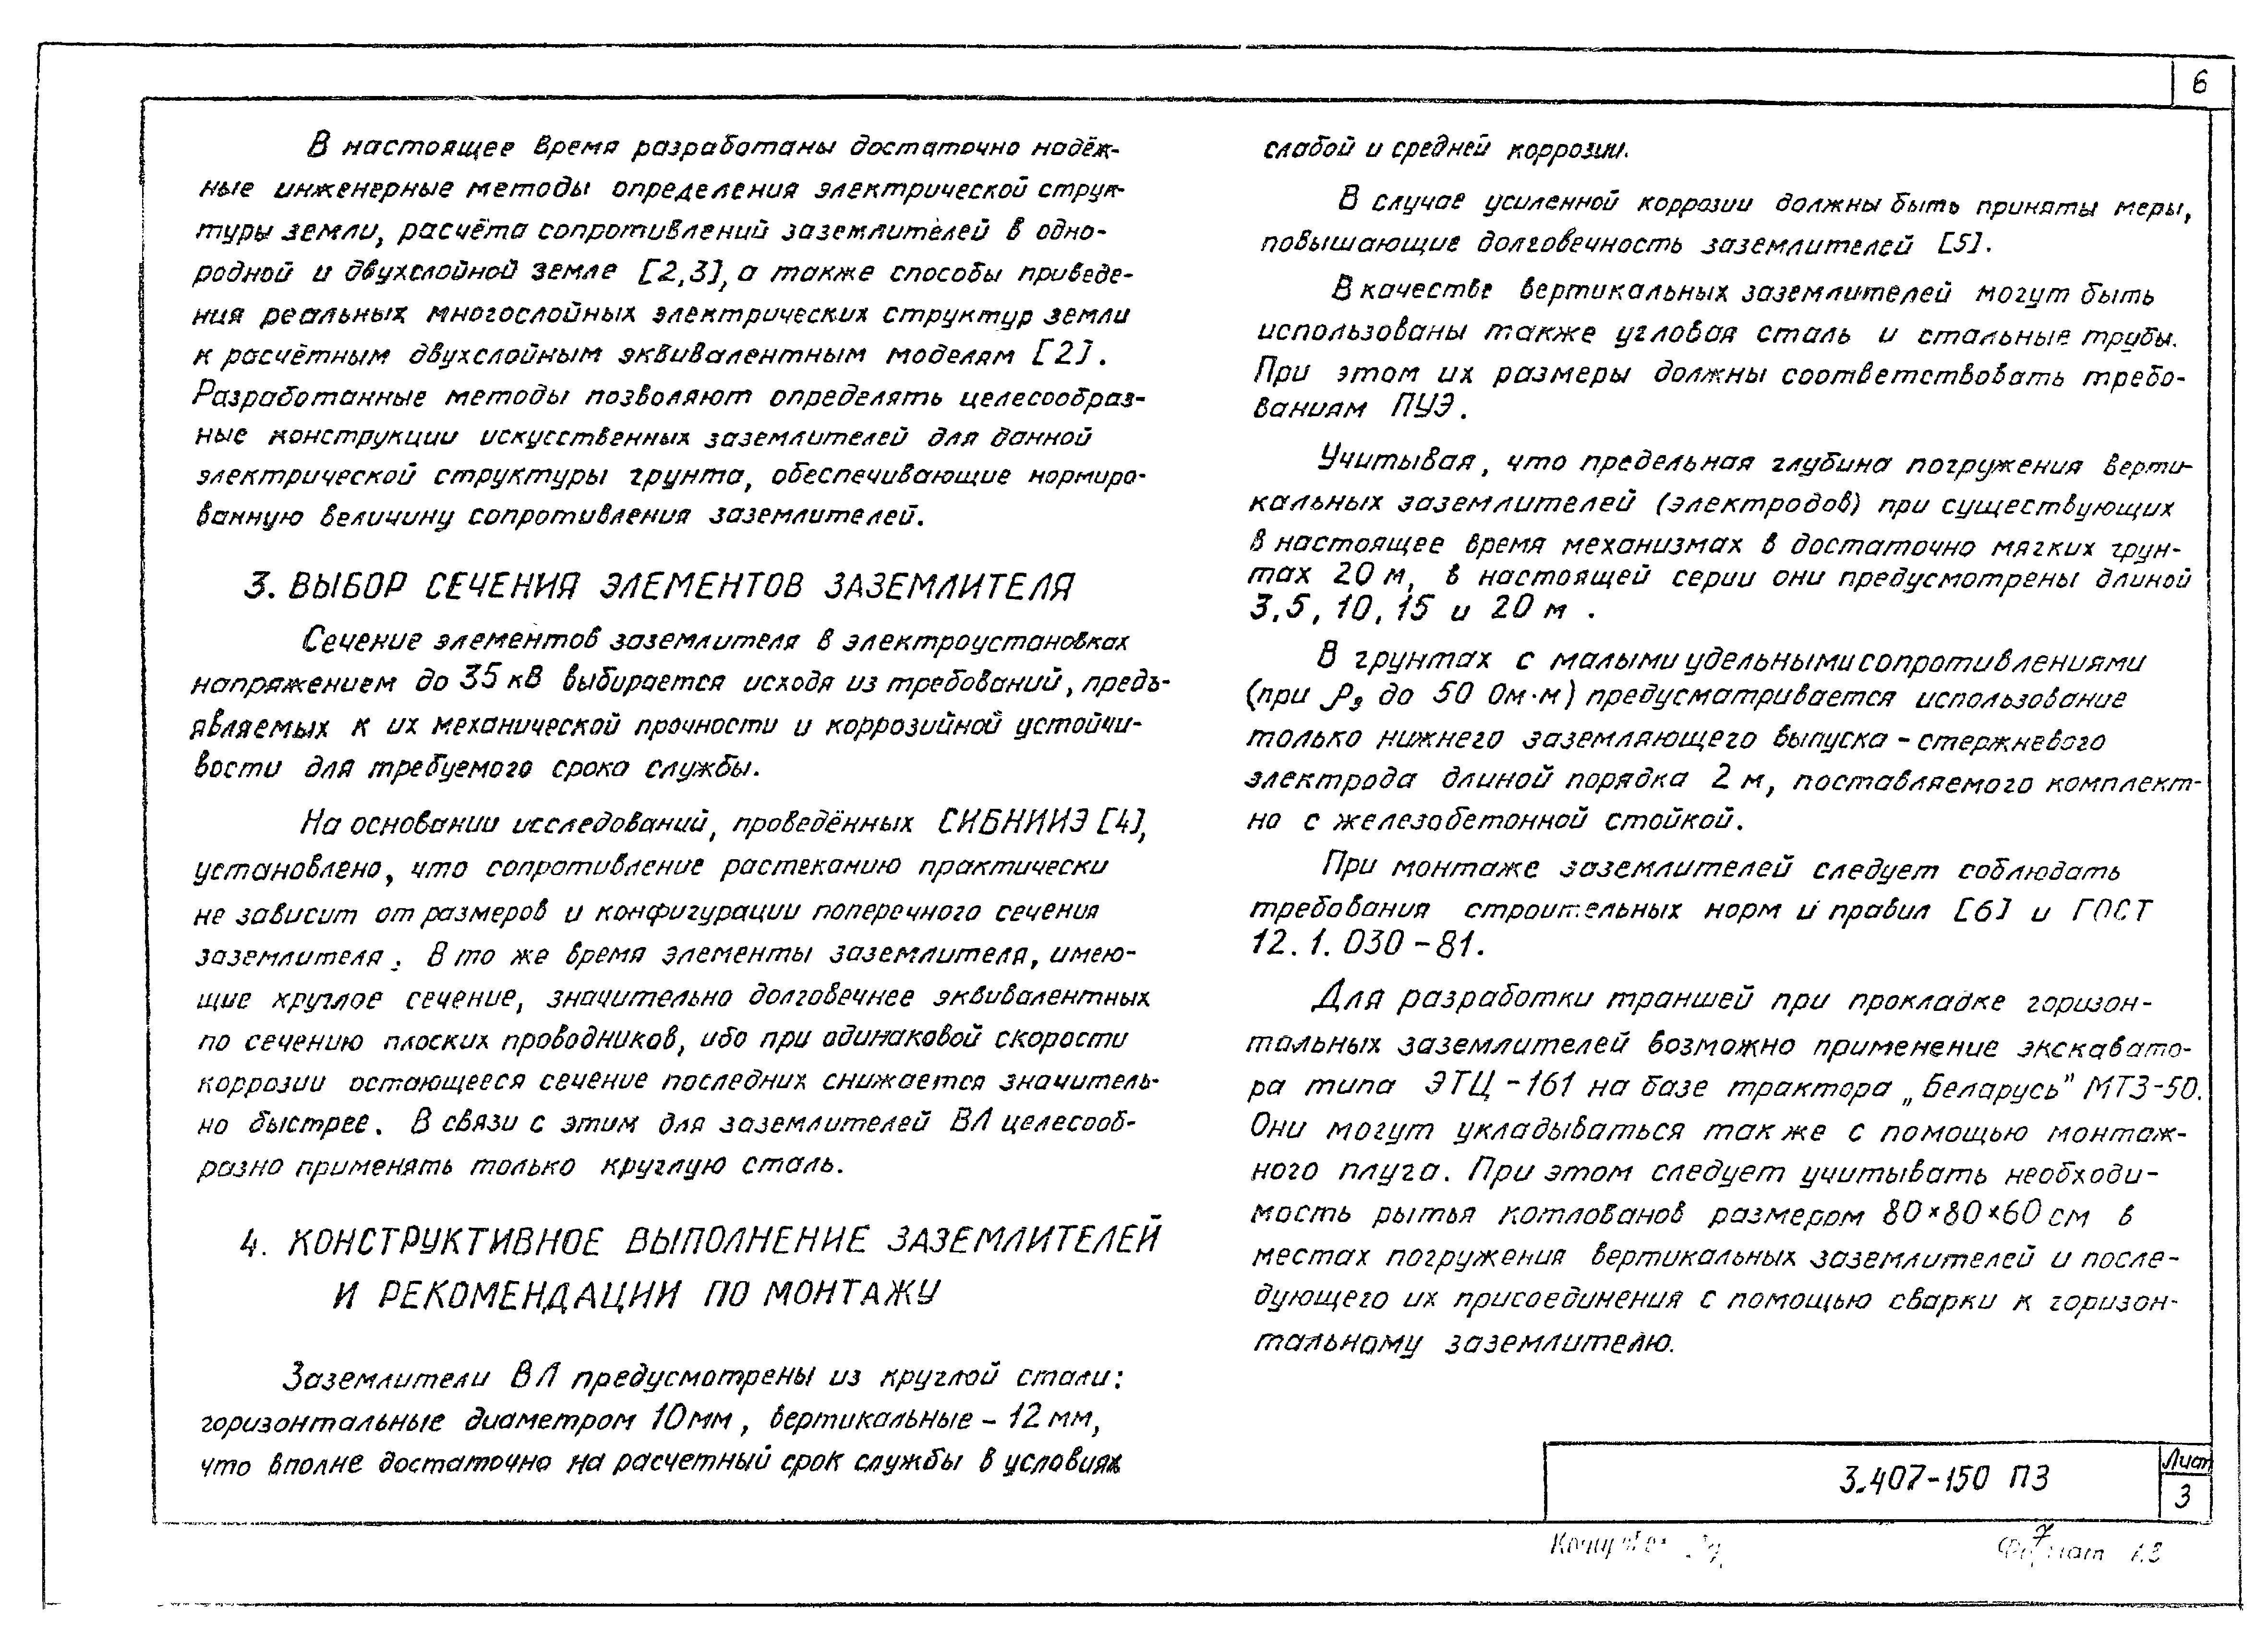 6
В настоящее время разработаны достаточно надёж-
ные инженерные методы определения электрической струк-
туры земли, расчёта сопротивлений заземлителей в одно-
родной и двухслойной земле [2,3], а также способы приведе-
ния реальных многослойных электрических структур земли
к расчётным двухслойным эквивалентным моделям [2].
Разработанные методы позволяют определять целесообраз-
ные конструкции искусственных заземлителей для данной
электрической структуры грунта, обеспечивающие нормиро-
ванную величину сопротивления заземлителей.
3. ВЫБОР СЕЧЕНИЯ ЭЛЕМЕНТОВ ЗАЗЕМЛИТЕЛЯ
Сечение элементов заземлителя в электроустановках
напряжением до 35 кВ выбирается исходя из требований, предъ-
являемых к их механической прочности и коррозийной устойчи-
вости для требуемого срока службы.
На основании исследований, проведённых СИБНИИЭ [4],
установлено, что сопротивление растеканию практически
не зависит от размеров и конфигурации поперечного сечения
заземлителя. В то же время элементы заземлителя, имею-
щие круглое сечение, значительно долговечнее эквивалентных
по сечению плоских проводников, ибо при одинаковой скорости
коррозии остающееся сечение последних снижается значитель-
но быстрее. В связи с этим для заземлителей ВЛ целесооб-
разно применять только круглую сталь.
4. КОНСТРУКТИВНОЕ ВЫПОЛНЕНИЕ ЗАЗЕМЛИТЕЛЕЙ
И РЕКОМЕНДАЦИИ ПО МОНТАЖУ
Заземлители ВЛ предусмотрены из круглой стали:
горизонтальные диаметром 10мм, вертикальные - 12 мм,
что вполне достаточно на расчетный срок службы в условиях
слабой и средней коррозии.
В случае усиленной коррозии должны быть приняты меры,
повышающие долговечность заземлителей [5].
В качестве вертикальных заземлителей могут быть
использованы также угловая сталь и стальные трубы.
При этом их размеры должны соответствовать требо-
ваниям ПУЭ.
Учитывая, что предельная глубина погружения верти-
кальных заземлителей (электродов) при существующих
в настоящее время механизмах в достаточно мягких грун-
тах 20 м, в настоящей серии они предусмотрены длиной
3,5, 10, 15 и 20 м.
В грунтах с малыми удельными сопротивлениями
(при ρэ до 50 Ом·м) предусматривается использование
только нижнего заземляющего выпуска - стержневого
электрода длиной порядка 2 м, поставляемого комплект-
но с железобетонной стойкой.
При монтаже заземлителей следует соблюдать
требования строительных норм и правил [6] и ГОСТ
12.1.030-81.
Для разработки траншей при прокладке горизон-
тальных заземлителей возможно применение экскавато-
ра типа ЭТЦ-161 на базе трактора „Беларусь" МТЗ-50.
Они могут укладываться также с помощью монтаж-
ного плуга. При этом следует учитывать необходи-
мость рытья котлованов размером 80×80×60 см в
местах погружения вертикальных заземлителей и после-
дующего их присоединения с помощью сварки к горизон-
тальному заземлителю.
3.407-150 ПЗ
Лист
3
7
Формат А3